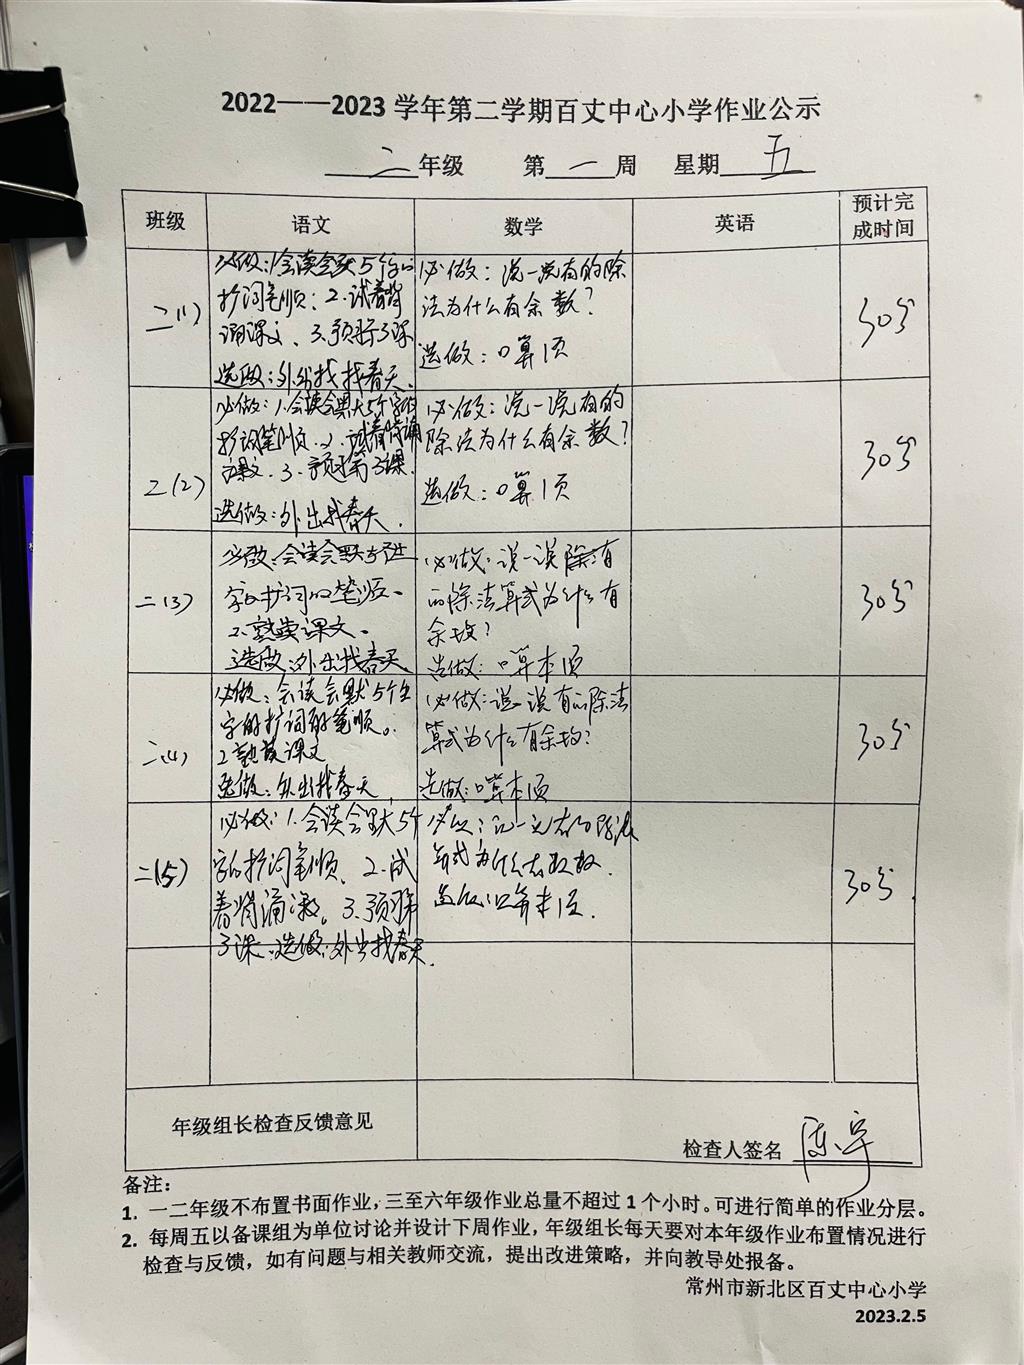 2022——2023 学年第二学期百丈中心小学作业公示
二 年级 第 一 周 星期 五
班级 语文 数学 英语 预计完成时间
二(1)
必做:1.会读会默5个字的
扩词笔顺;2.试着背
诵课文、3.预习3课
选做:外出找找春天.
必做:说一说有的除
法为什么有余数?
选做:口算1页
30分
二(2)
必做:1.会读会默5个字的
扩词笔顺.2.试着背诵
课文.3.预习第3课.
选做:外出找春天.
必做:说一说有的
除法为什么有余数?
选做:口算1页
30分
二(3)
必做:会读会默5个生
字的扩词的笔顺.
2.熟读课文.
选做:外出找春天
必做:说一说除有
的除法算式为什么有
余数?
选做:口算本1页
30分
二(4)
必做:会读会默5个生
字的扩词的笔顺。
2熟读课文
选做:外出找春天.
必做:说一说有的除法
算式为什么有余数?
选做:口算本1页
30分
二(5)
必做:1.会读会默5个
字的扩词笔顺、2.试
着背诵课文。3.预习第
3课.选做:外出找春天.
必做:说一说有的除法
算式为什么有余数.
选做:口算本1页.
30分.
年级组长检查反馈意见
检查人签名
备注:
1. 一二年级不布置书面作业,三至六年级作业总量不超过 1 个小时。可进行简单的作业分层。
2. 每周五以备课组为单位讨论并设计下周作业,年级组长每天要对本年级作业布置情况进行
检查与反馈,如有问题与相关教师交流,提出改进策略,并向教导处报备。
常州市新北区百丈中心小学
2023.2.5